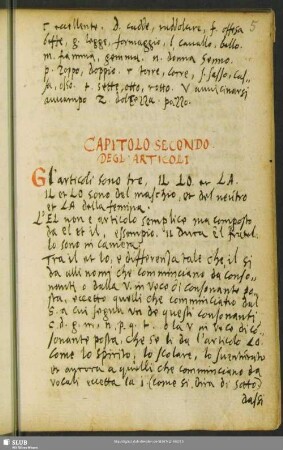 5
r eccellente. D. cadde, raddolcire, f. offesa
beffe, g. legge, formaggio, l cavallo, bello.
m. fiamma, gemma. n. donna senno.
p. Zoppo, doppio. r terre, corre, s. sasso, cas-
sa, osso. t. sette, otto, rotto. V avvicinarsi
Z. dolcezza. pozzo.
CAPITOLO SECONDO
DEGL'ARTICOLI
Gl'articoli sono tre, IL LO. et LA.
IL et LO sono del maschio, et del neutro
et LA della femina.
L'EL non è articolo semplice ma composto
da el et il, essempio. IL Duca è il fratel-
lo sono in camera.
Tra il et lo, è differenza tale che il si
da alli nomi che comminciano da conso-
nanti o dalla V. in voco di consonante po-
sta, eccetto quelli che comminciano dal
S. a cui segua una de questi consonanti
c. d. g. m, n, p. q. t. o la v in voco di co-
sonante posta, che se li da l'articolo LO.
come lo spirito, lo scolare, lo
et ancora a quelli che comminciano da
vocali eccetta la i (come si dirà di sotto)
dassi
SLUB